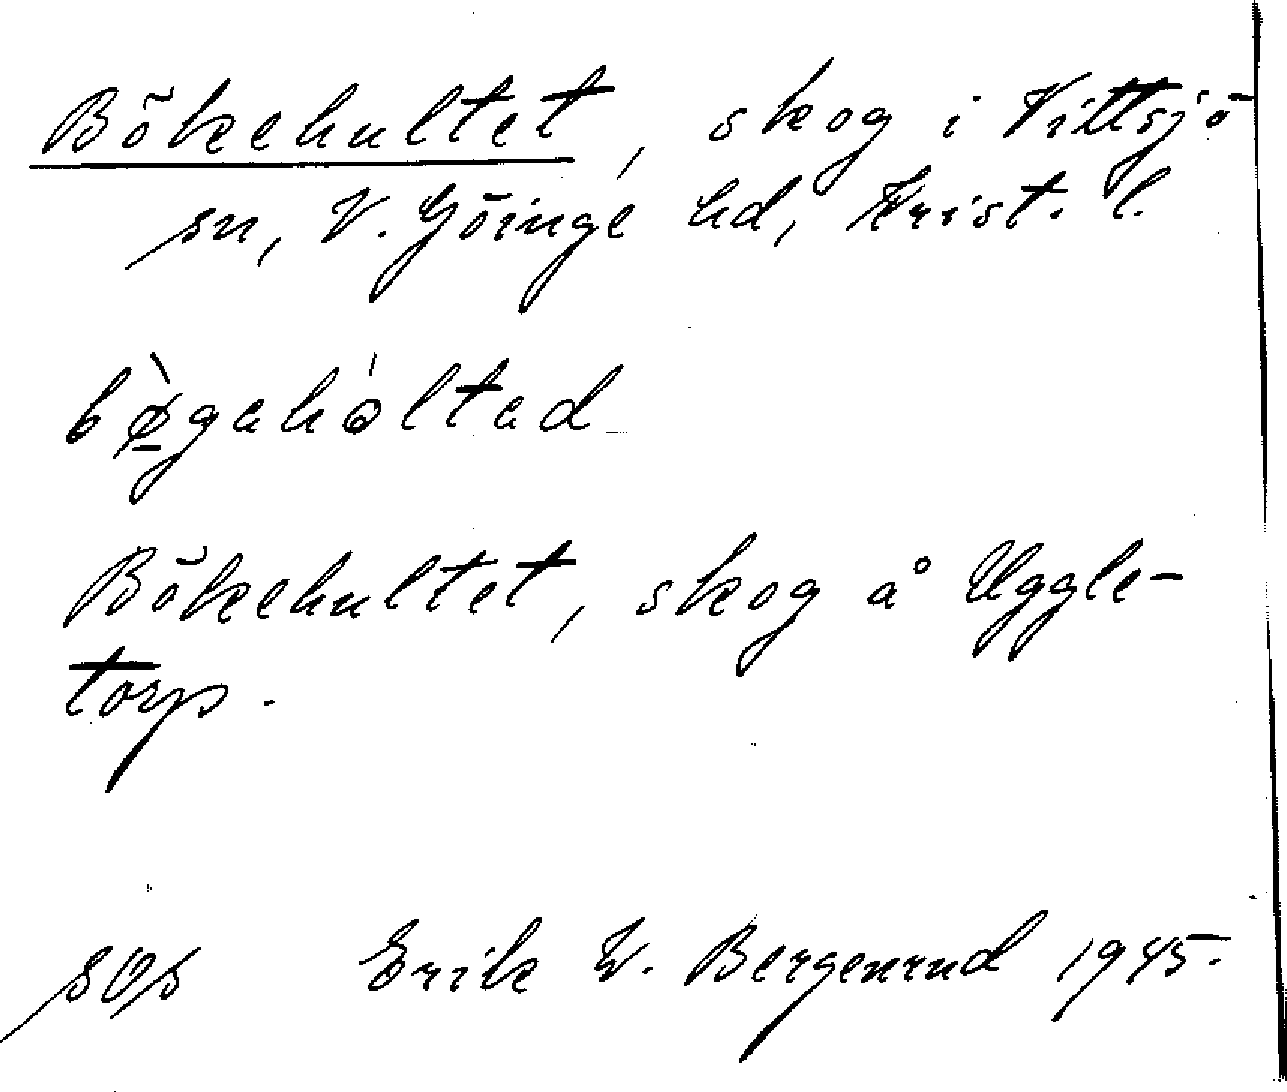 Bökehultet, skog i Vittsjö
sn, V. Göinge hd, Krist. l.
bø̀gahåltad
Bökehultet, skog å Uggle-
torp.
Erik W. Bergenrud 1945.